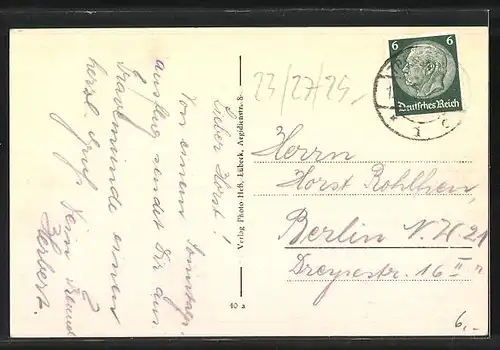 Lieber Horst!
Von einem Sonntags-
ausflug sendet Dir aus
Travemünde einen
herzl. Gruß Dein Freund
Herbert.
Verlag Photo-Heß, Lübeck, Aegidienstr. 8
40 a
23/27/29
6 6
Deutsches Reich
Herrn
Horst
Berlin N.W.21
Dreysestr. 16 II
6,-